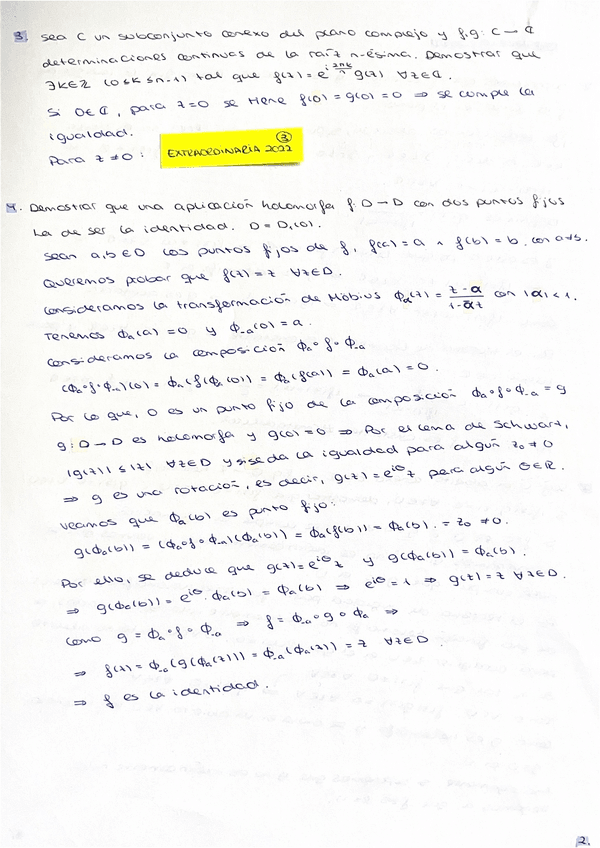 3. Sea C un subconjunto conexo del plano complejo y f,g: C → ℂ
determinaciones continuas de la raíz n-ésima. Demostrar que
∃k∈ℤ (0≤k≤n-1) tal que f(z) = e^{i 2πk/n} g(z) ∀z∈C.
Si 0∈C, para z=0 se tiene f(0) = g(0) = 0 ⇒ se cumple la
igualdad.
Para z≠0:
③
EXTRAORDINARIA 2022
4. Demostrar que una aplicación holomorfa f: D → D con dos puntos fijos
ha de ser la identidad. D = D₁(0).
Sean a,b∈D los puntos fijos de f, f(a) = a ∧ f(b) = b, con a≠b.
Queremos probar que f(z) = z ∀z∈D.
Consideramos la transformación de Möbius Φ_α(z) = (z-α)/(1-ᾱz) con |α|<1.
Tenemos Φ_a(a) = 0 y Φ_-a(0) = a.
Consideramos la composición Φ_a∘f∘Φ_-a
(Φ_a∘f∘Φ_-a)(0) = Φ_a(f(Φ_-a(0))) = Φ_a(f(a)) = Φ_a(a) = 0.
Por lo que, 0 es un punto fijo de la composición Φ_a∘f∘Φ_-a = g
g: D→D es holomorfa y g(0) = 0 ⇒ Por el lema de Schwarz,
|g(z)| ≤ |z| ∀z∈D y si se da la igualdad para algún z₀≠0
⇒ g es una rotación, es decir, g(z) = e^{iθ} z para algún θ∈ℝ.
Veamos que Φ_a(b) es punto fijo:
g(Φ_a(b)) = (Φ_a∘f∘Φ_-a)(Φ_a(b)) = Φ_a(f(b)) = Φ_a(b). = z₀ ≠ 0.
Por ello, se deduce que g(z) = e^{iθ} z y g(Φ_a(b)) = Φ_a(b).
⇒ g(Φ_a(b)) = e^{iθ}·Φ_a(b) = Φ_a(b) ⇒ e^{iθ} = 1 ⇒ g(z) = z ∀z∈D.
Como g = Φ_a∘f∘Φ_-a ⇒ f = Φ_-a∘g∘Φ_a ⇒
⇒ f(z) = Φ_-a(g(Φ_a(z))) = Φ_-a(Φ_a(z)) = z ∀z∈D
⇒ f es la identidad.
2.